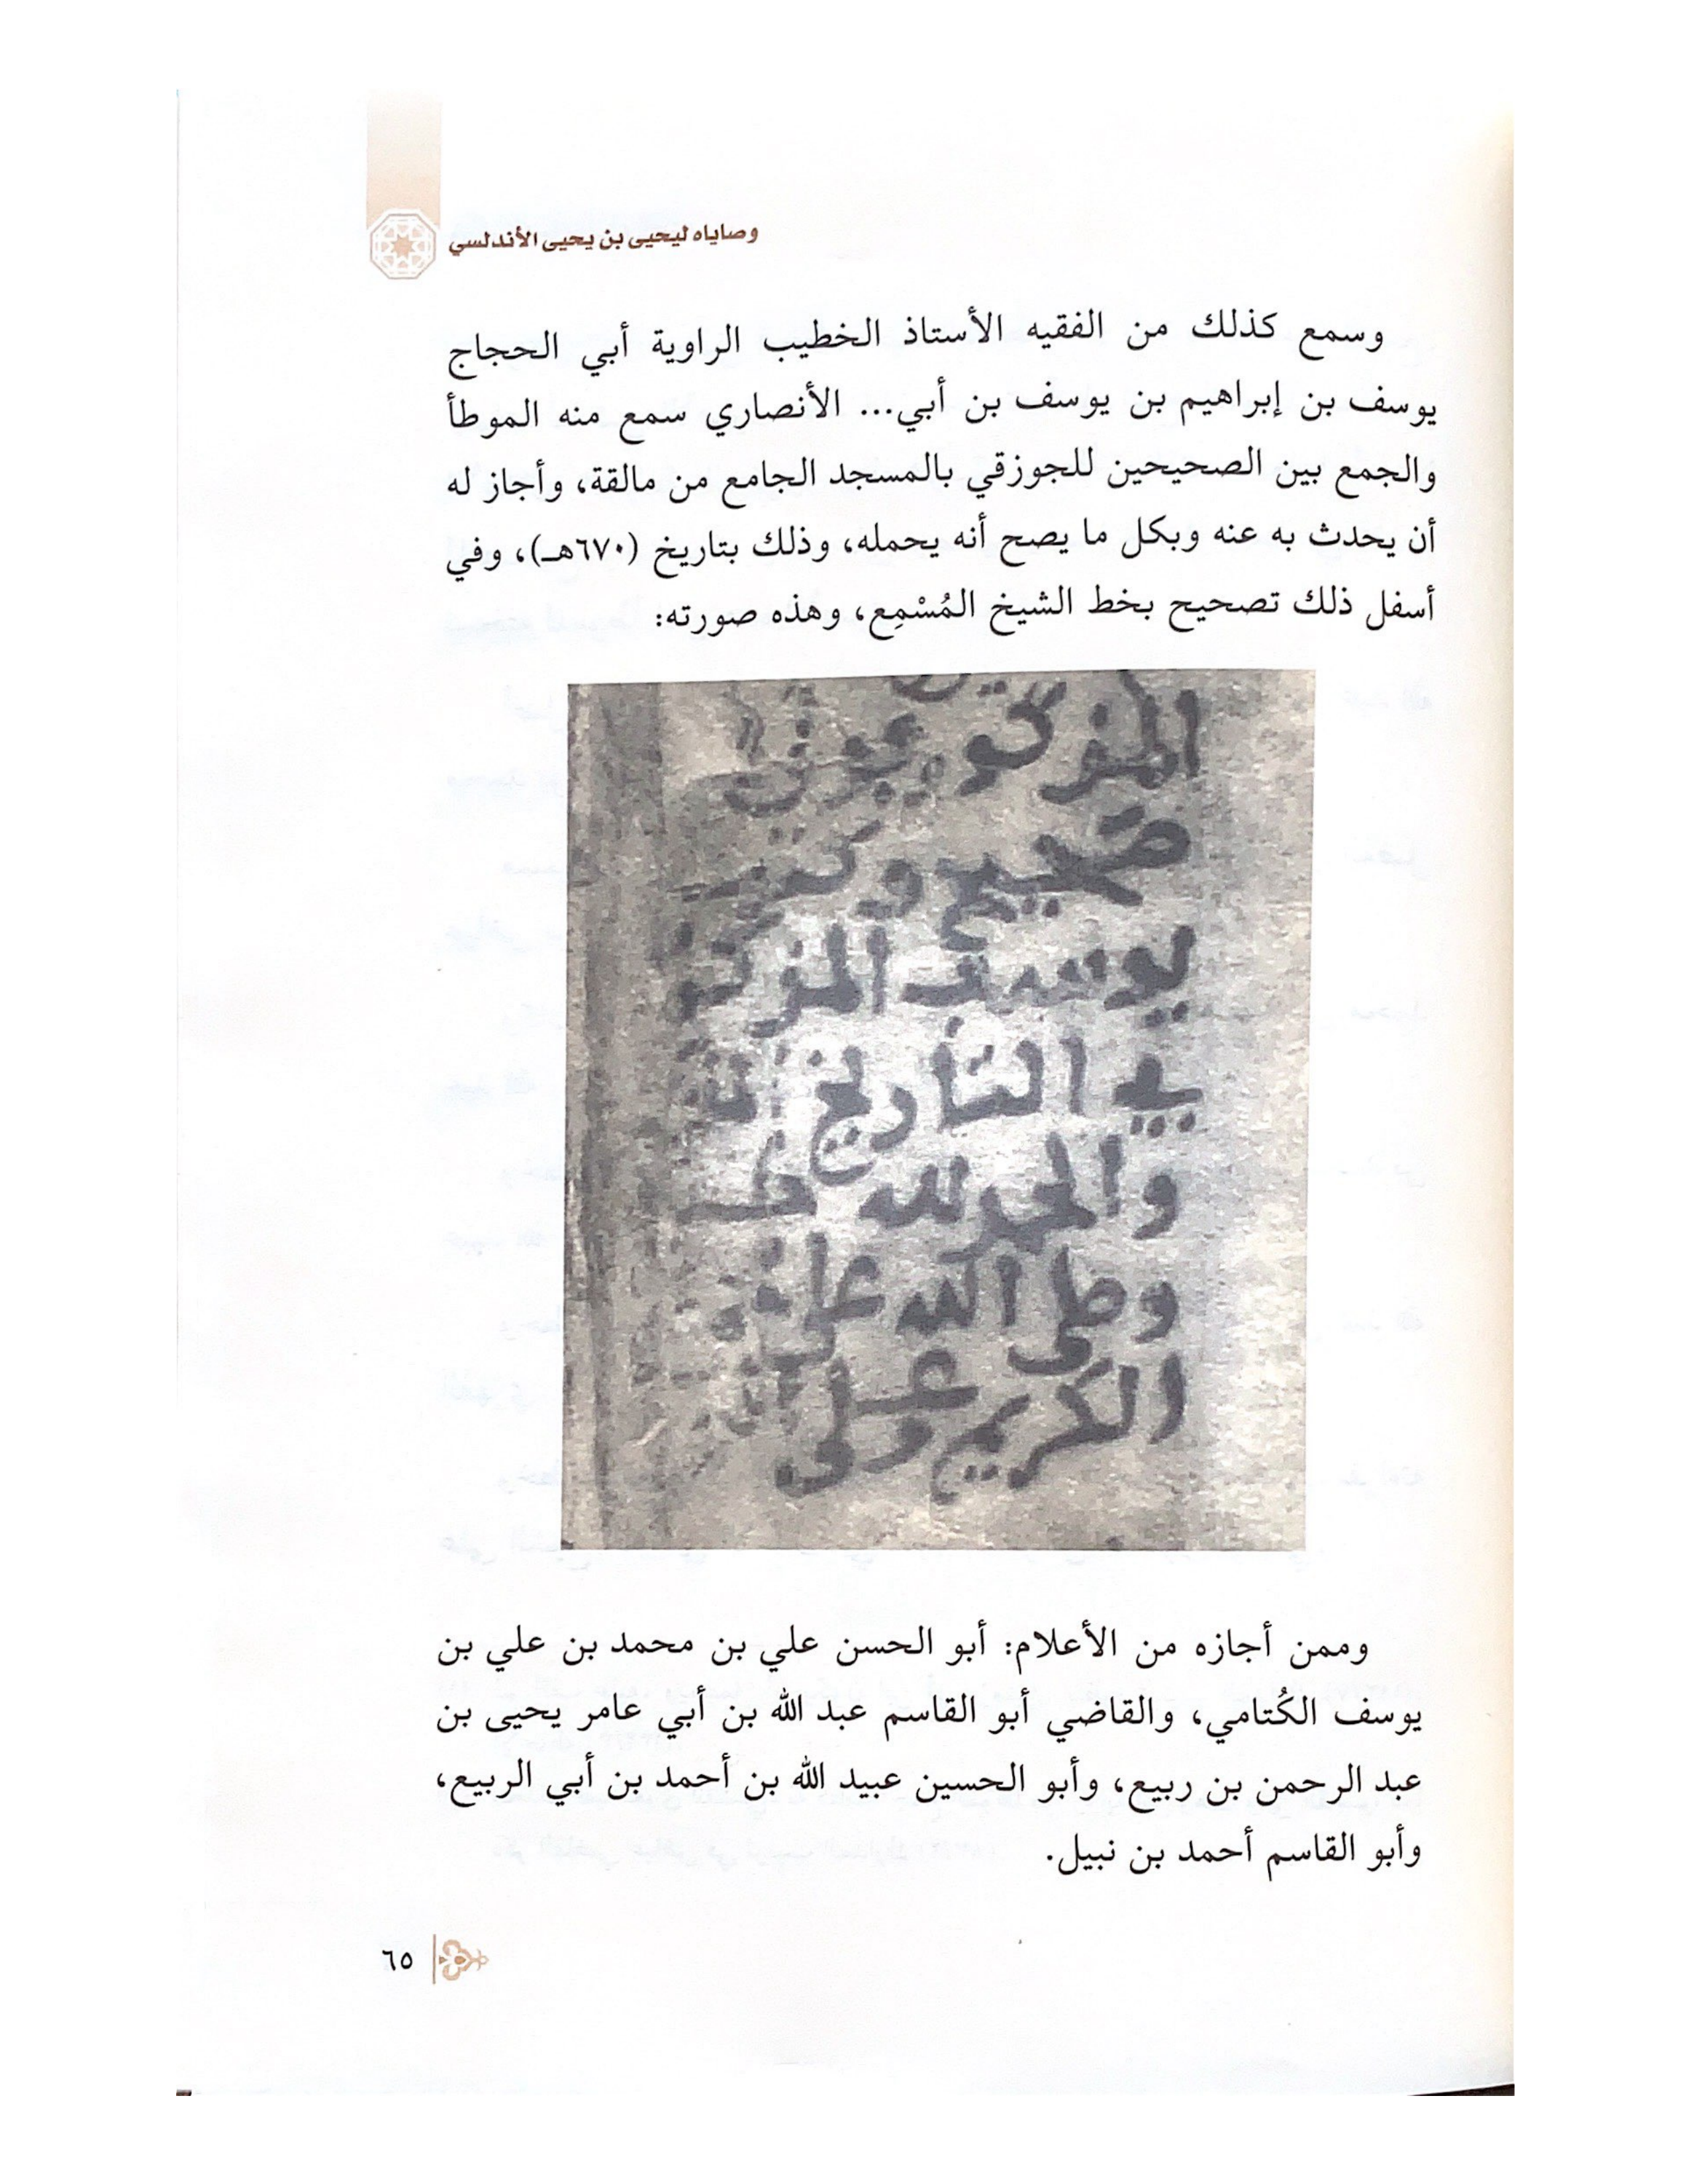 وصاياه ليحيى بن يحيى الأندلسي
وسمع كذلك من الفقيه الأستاذ الخطيب الراوية أبي الحجاج
يوسف بن إبراهيم بن يوسف بن أبي... الأنصاري سمع منه الموطأ
والجمع بين الصحيحين للجوزقي بالمسجد الجامع من مالقة، وأجاز له
أن يحدث به عنه وبكل ما يصح أنه يحمله، وذلك بتاريخ (٦٧٠هـ)، وفي
أسفل ذلك تصحيح بخط الشيخ المُسْمِع، وهذه صورته:
المذكور
صحيح وكتب
يوسف المذكور
في التأريخ
والحمد لله
وصلى الله على
الكريم وعلى
وممن أجازه من الأعلام: أبو الحسن علي بن محمد بن علي بن
يوسف الكُتامي، والقاضي أبو القاسم عبد الله بن أبي عامر يحيى بن
عبد الرحمن بن ربيع، وأبو الحسين عبيد الله بن أحمد بن أبي الربيع،
وأبو القاسم أحمد بن نبيل.
٦٥